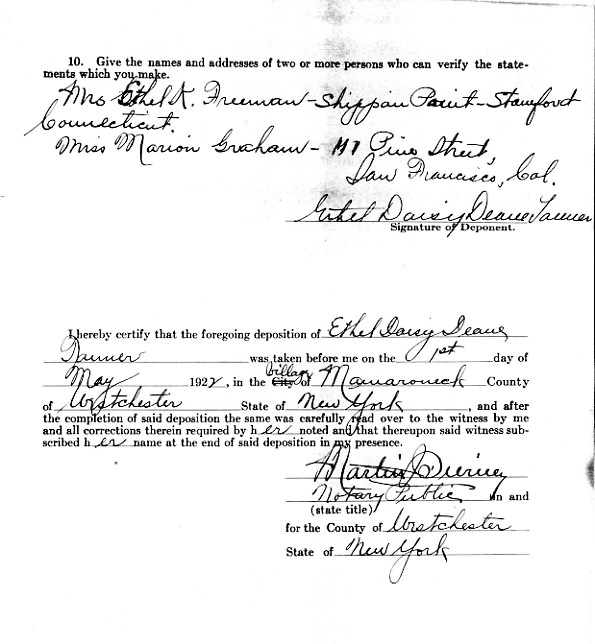 10. Give the names and addresses of two or more persons who can verify the state-
ments which you make.
Mrs Ethel K. Freeman - Shippan Point - Stamford
Connecticut.
Miss Marion Graham - Pine Street,
San Francisco, Cal.
Ethel Daisy Deane Tanner
Signature of Deponent.
I hereby certify that the foregoing deposition of Ethel Daisy Deane
Tanner was taken before me on the 1st day of
Village
May 1922, in the City of Mamaroneck County
of Westchester State of New York, and after
the completion of said deposition the same was carefully read over to the witness by me
and all corrections therein required by her noted and that thereupon said witness sub-
scribed her name at the end of said deposition in my presence.
Martin
Notary Public in and
(state title)
for the County of Westchester
State of New York